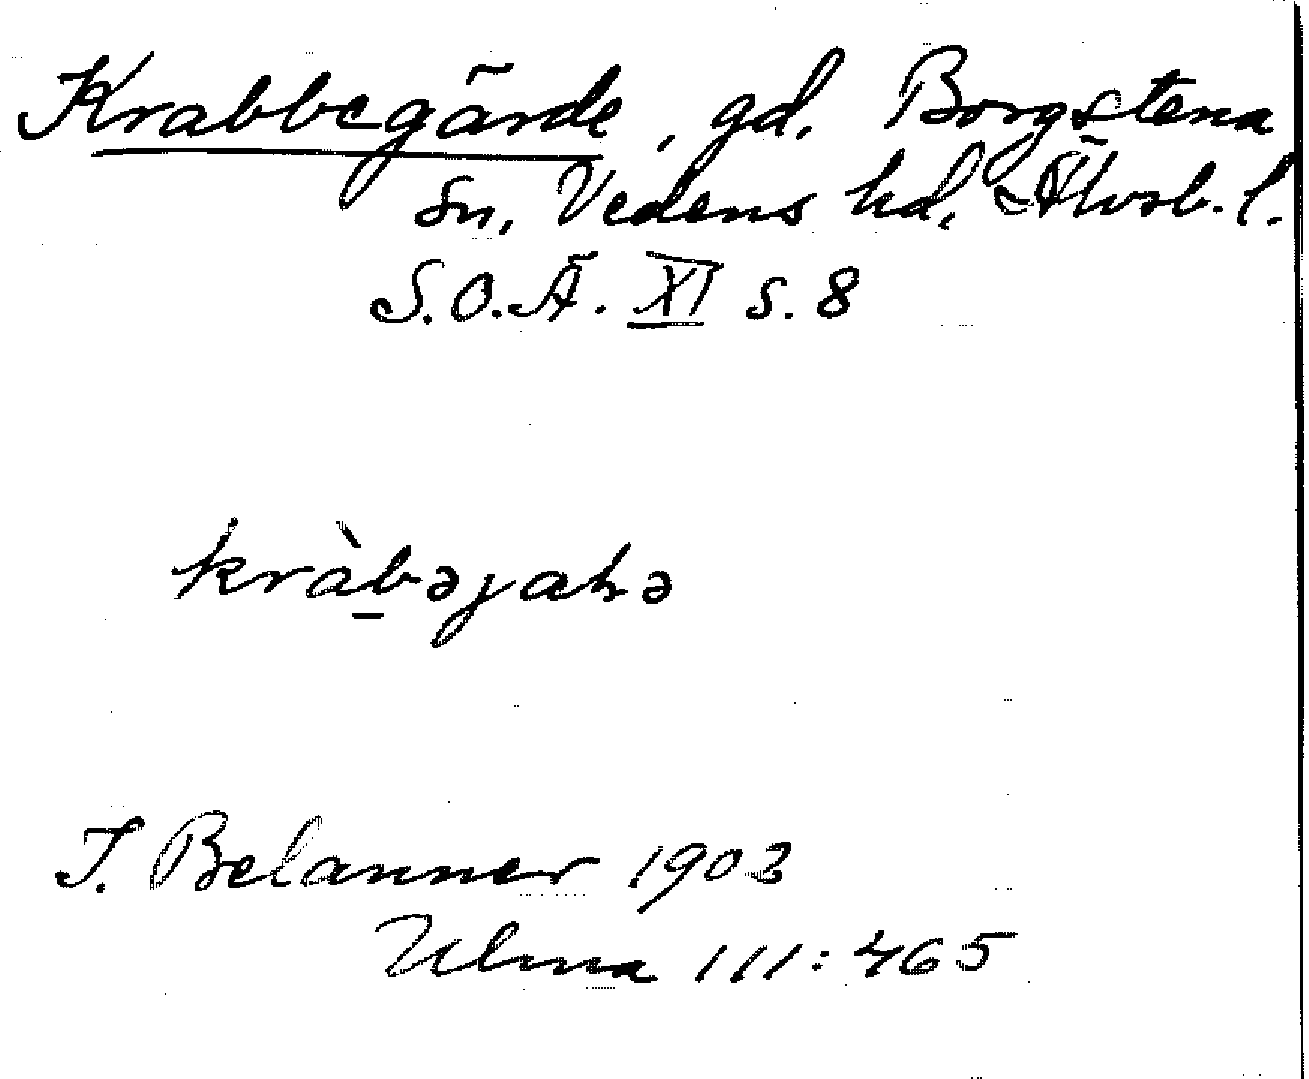 Krabbegärde, gd. Borgstena
sn, Vedens hd, Älvsb. l.
S.O.Ä. XI s. 8
T. Belanner 1903
Ulma 111:465